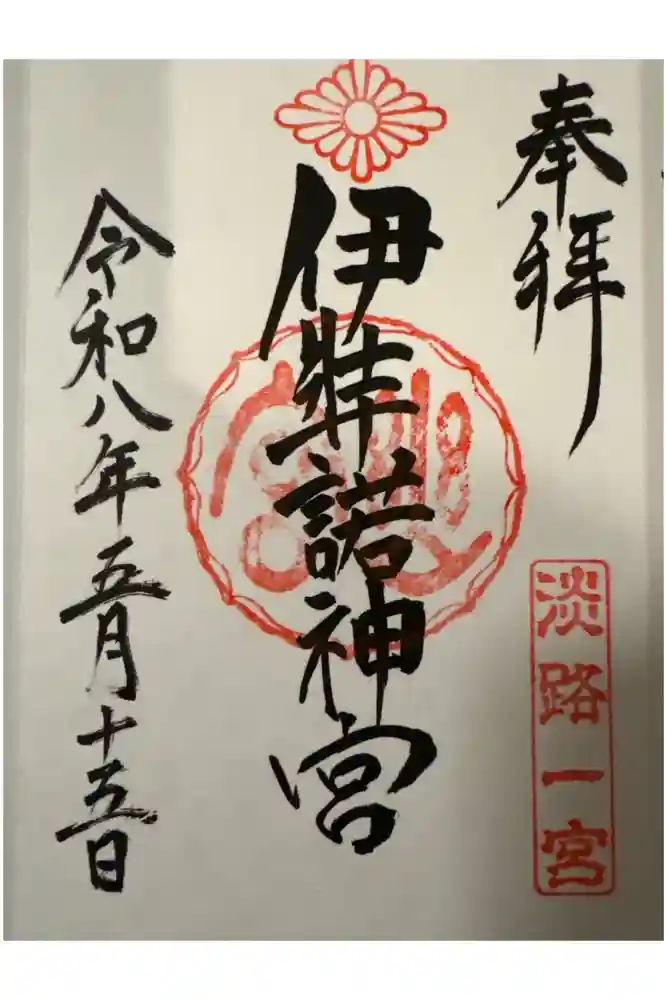 奉拝
淡路一宮
伊弉諾神宮
令和八年五月十五日